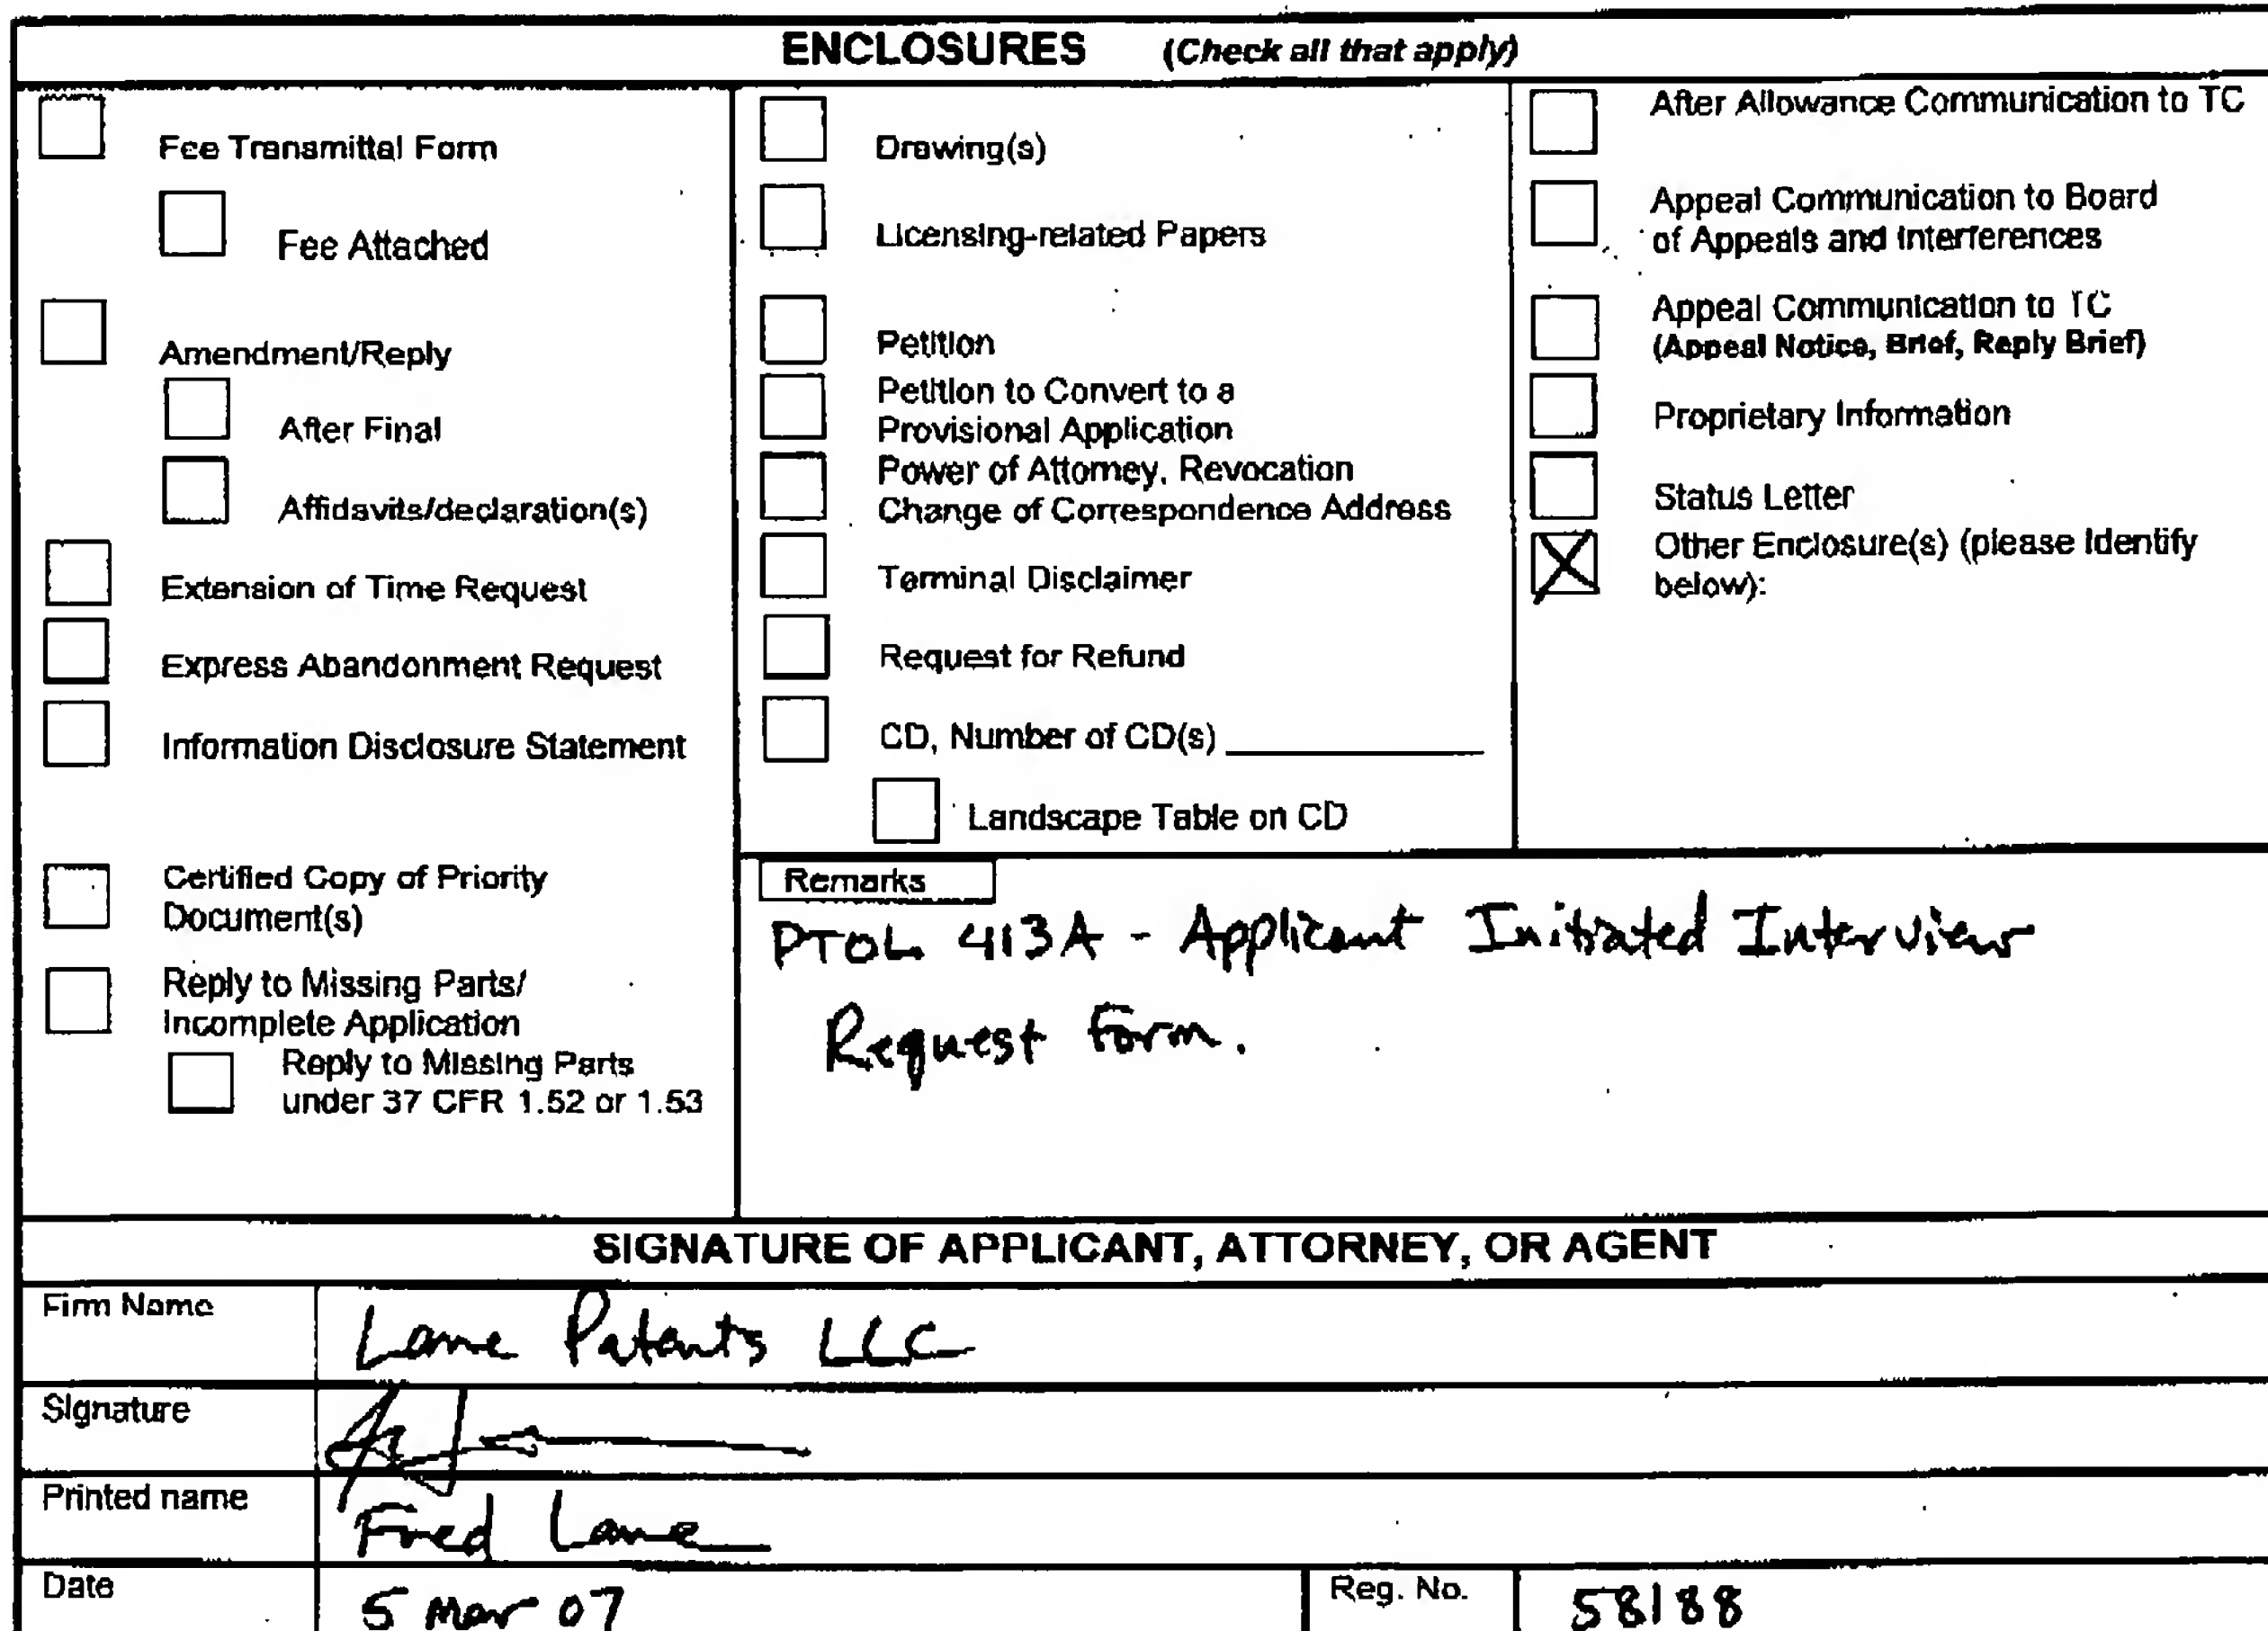 ENCLOSURES (Check all that apply)
Fee Transmittal Form
Fee Attached
Amendment/Reply
After Final
Affidavits/declaration(s)
Extension of Time Request
Express Abandonment Request
Information Disclosure Statement
Certified Copy of Priority
Document(s)
Reply to Missing Parts/
Incomplete Application
Reply to Missing Parts
under 37 CFR 1.52 or 1.53
Drawing(s)
Licensing-related Papers
Petition
Petition to Convert to a
Provisional Application
Power of Attorney, Revocation
Change of Correspondence Address
Terminal Disclaimer
Request for Refund
CD, Number of CD(s)
Landscape Table on CD
After Allowance Communication to TC
Appeal Communication to Board
of Appeals and Interferences
Appeal Communication to TC
(Appeal Notice, Brief, Reply Brief)
Proprietary Information
Status Letter
Other Enclosure(s) (please Identify
below):
Remarks
PTOL 413A - Applicant Initiated Interview
Request Form.
SIGNATURE OF APPLICANT, ATTORNEY, OR AGENT
Firm Name
Lane Patents LLC
Signature
Printed name
Fred Lane
Date
5 Mar 07
Reg. No.
58188